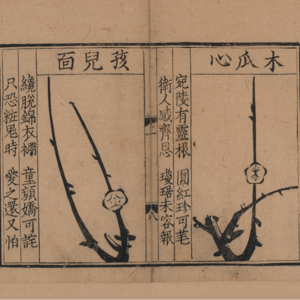 木瓜心
宛陵有靈根　圓紅珍可芼
衛人感齊恩　瓊琚未容報
八
孩兒面
纔脫錦衣　童顏嬌可詫
只恐粧鬼時　愛之還又怕